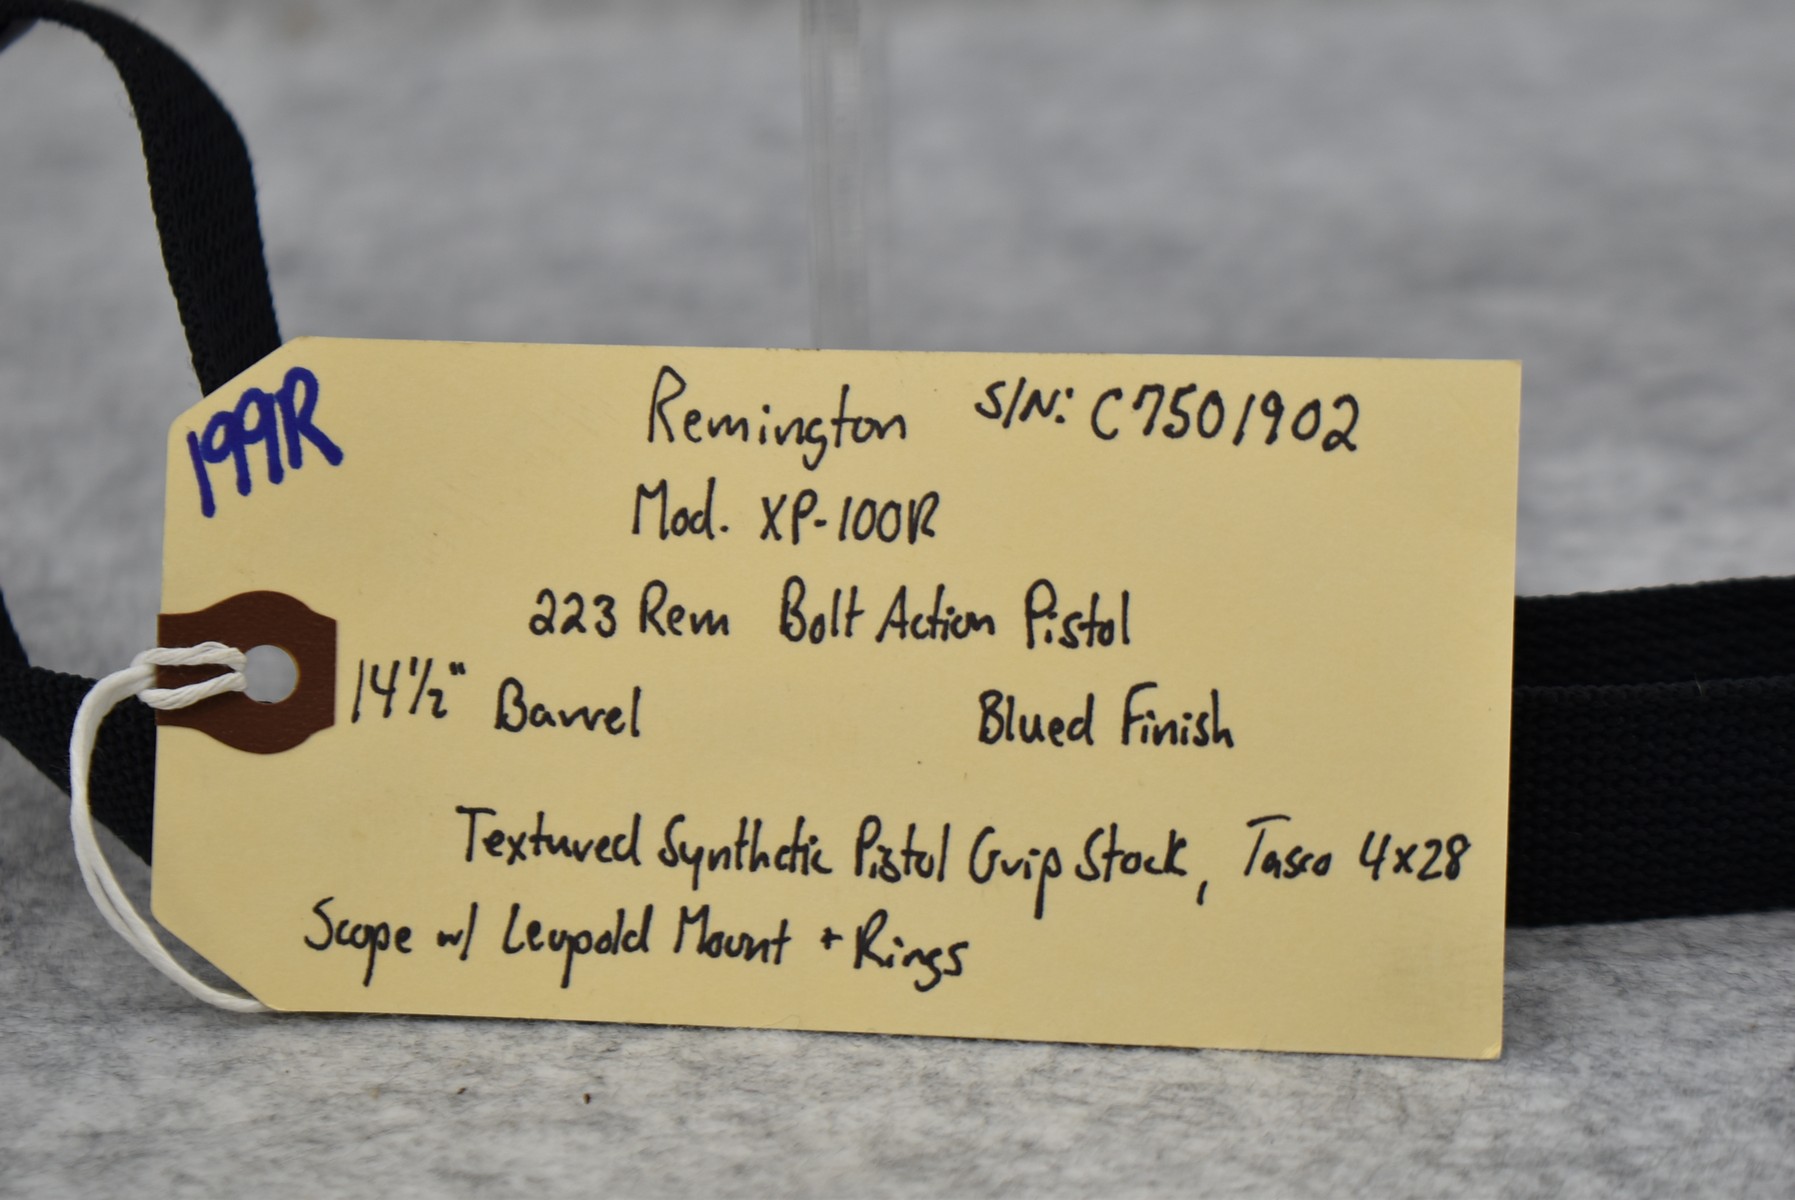 199R
Remington S/N: C7501902
Mod. XP-100R
223 Rem Bolt Action Pistol
14½" Barrel Blued Finish
Textured Synthetic Pistol Grip Stock, Tasco 4x28
Scope w/ Leupold Mount + Rings